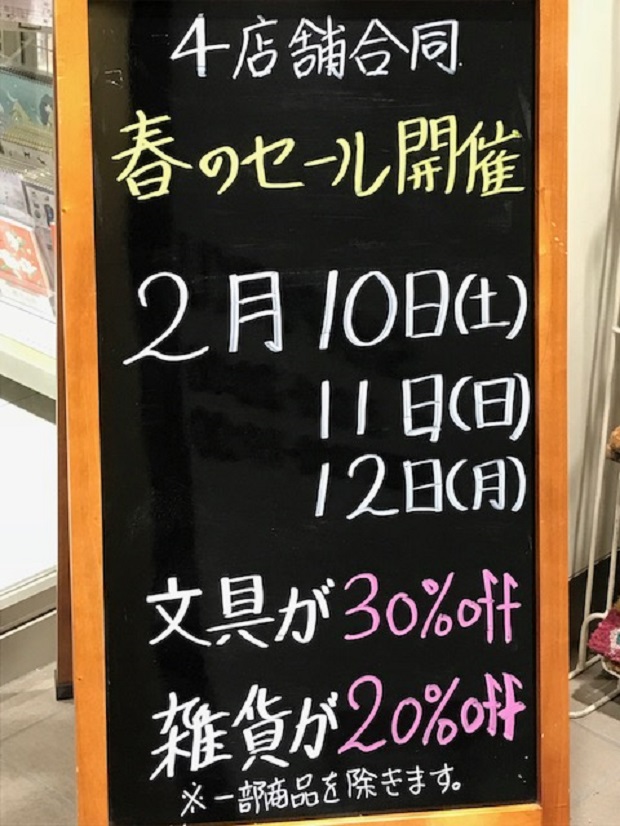 4店舗合同
春のセール開催
2月10日(土)
11日(日)
12日(月)
文具が30%off
雑貨が20%off
※一部商品を除きます。